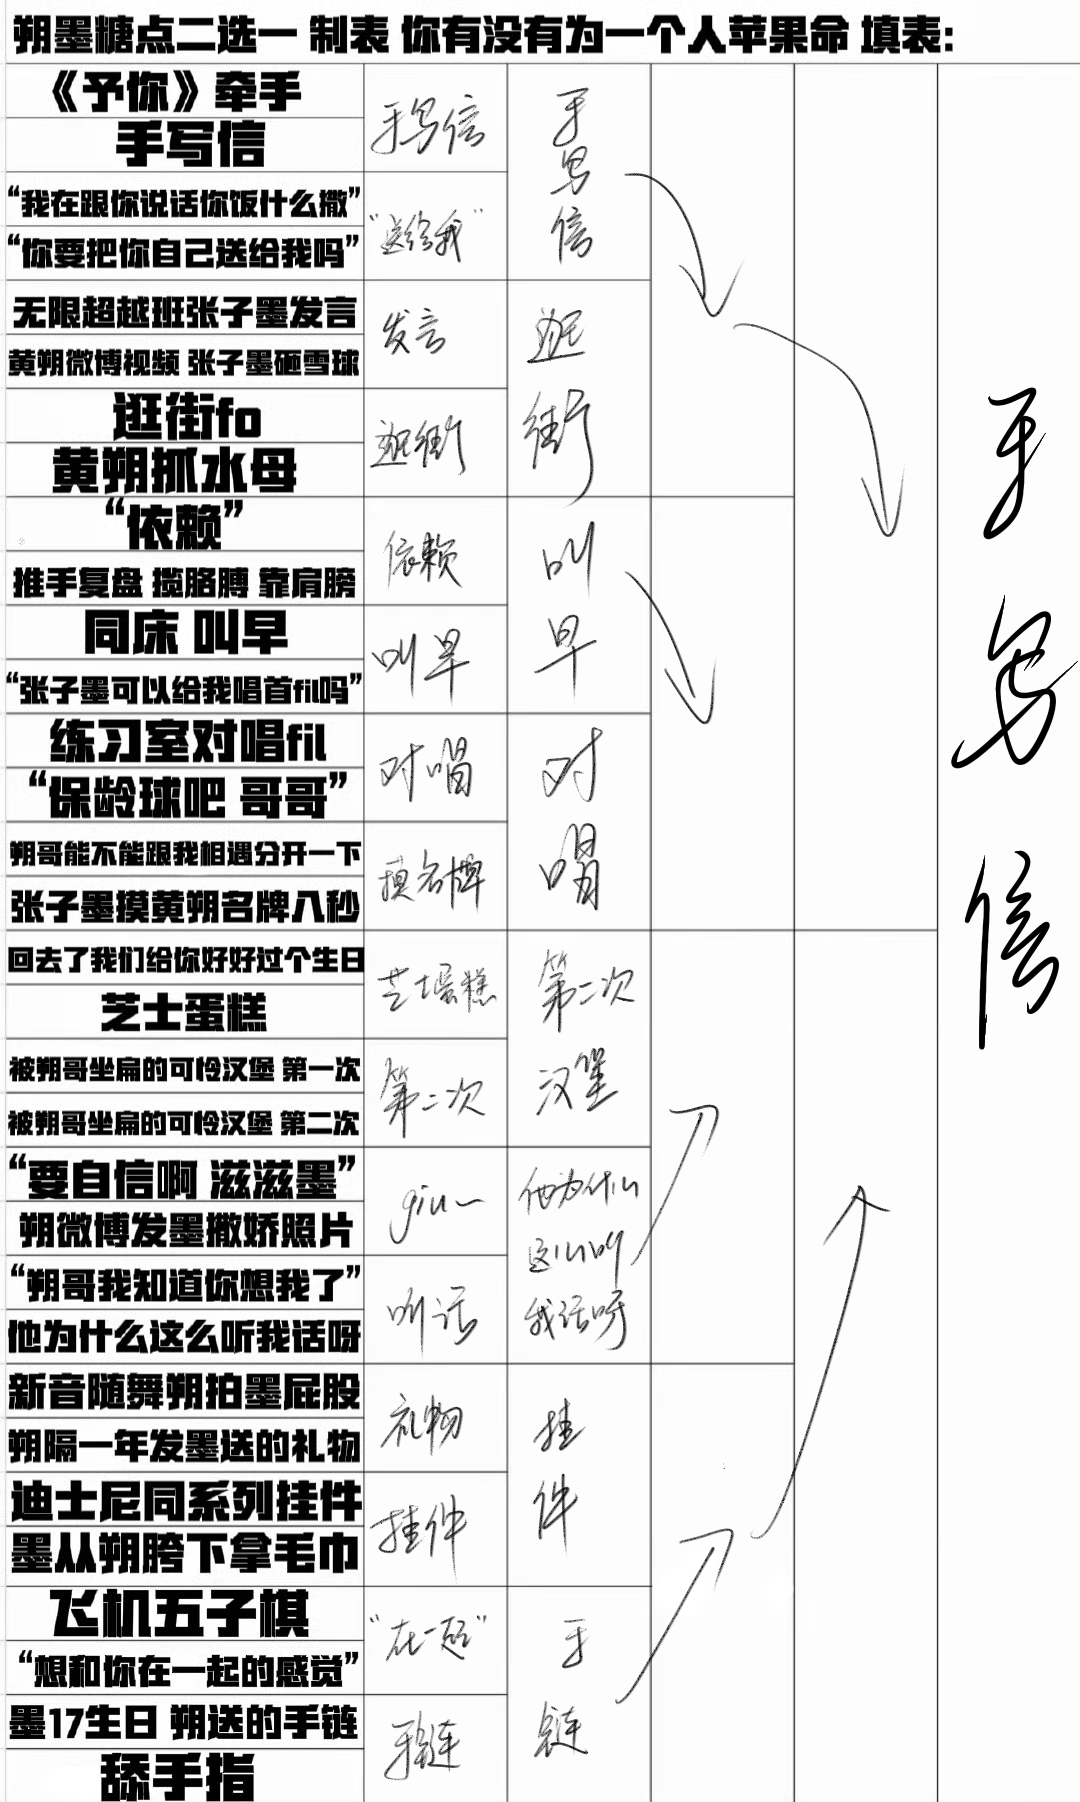 朔墨糖点二选一 制表 你有没有为一个人苹果命 填表:
《予你》牵手
手写信
“我在跟你说话你饭什么撒”
“你要把你自己送给我吗”
无限超越班张子墨发言
黄朔微博视频 张子墨砸雪球
逛街fo
黄朔抓水母
“依赖”
推手复盘 揽胳膊 靠肩膀
同床 叫早
“张子墨可以给我唱首fil吗”
练习室对唱fil
“保龄球吧 哥哥”
朔哥能不能跟我相遇分开一下
张子墨摸黄朔名牌八秒
回去了我们给你好好过个生日
芝士蛋糕
被朔哥坐扁的可怜汉堡 第一次
被朔哥坐扁的可怜汉堡 第二次
“要自信啊 滋滋墨”
朔微博发墨撒娇照片
“朔哥我知道你想我了”
他为什么这么听我话呀
新音随舞朔拍墨屁股
朔隔一年发墨送的礼物
迪士尼同系列挂件
墨从朔胯下拿毛巾
飞机五子棋
“想和你在一起的感觉”
墨17生日 朔送的手链
舔手指
手写信
“送给我”
发言
逛街
依赖
叫早
对唱
摸名牌
芝士蛋糕
第二次
听话
礼物
挂件
“在一起”
手链
手写信
逛街
叫早
对唱
第二次
汉堡
他为什么
这么听
我话呀
挂件
手链
手写信